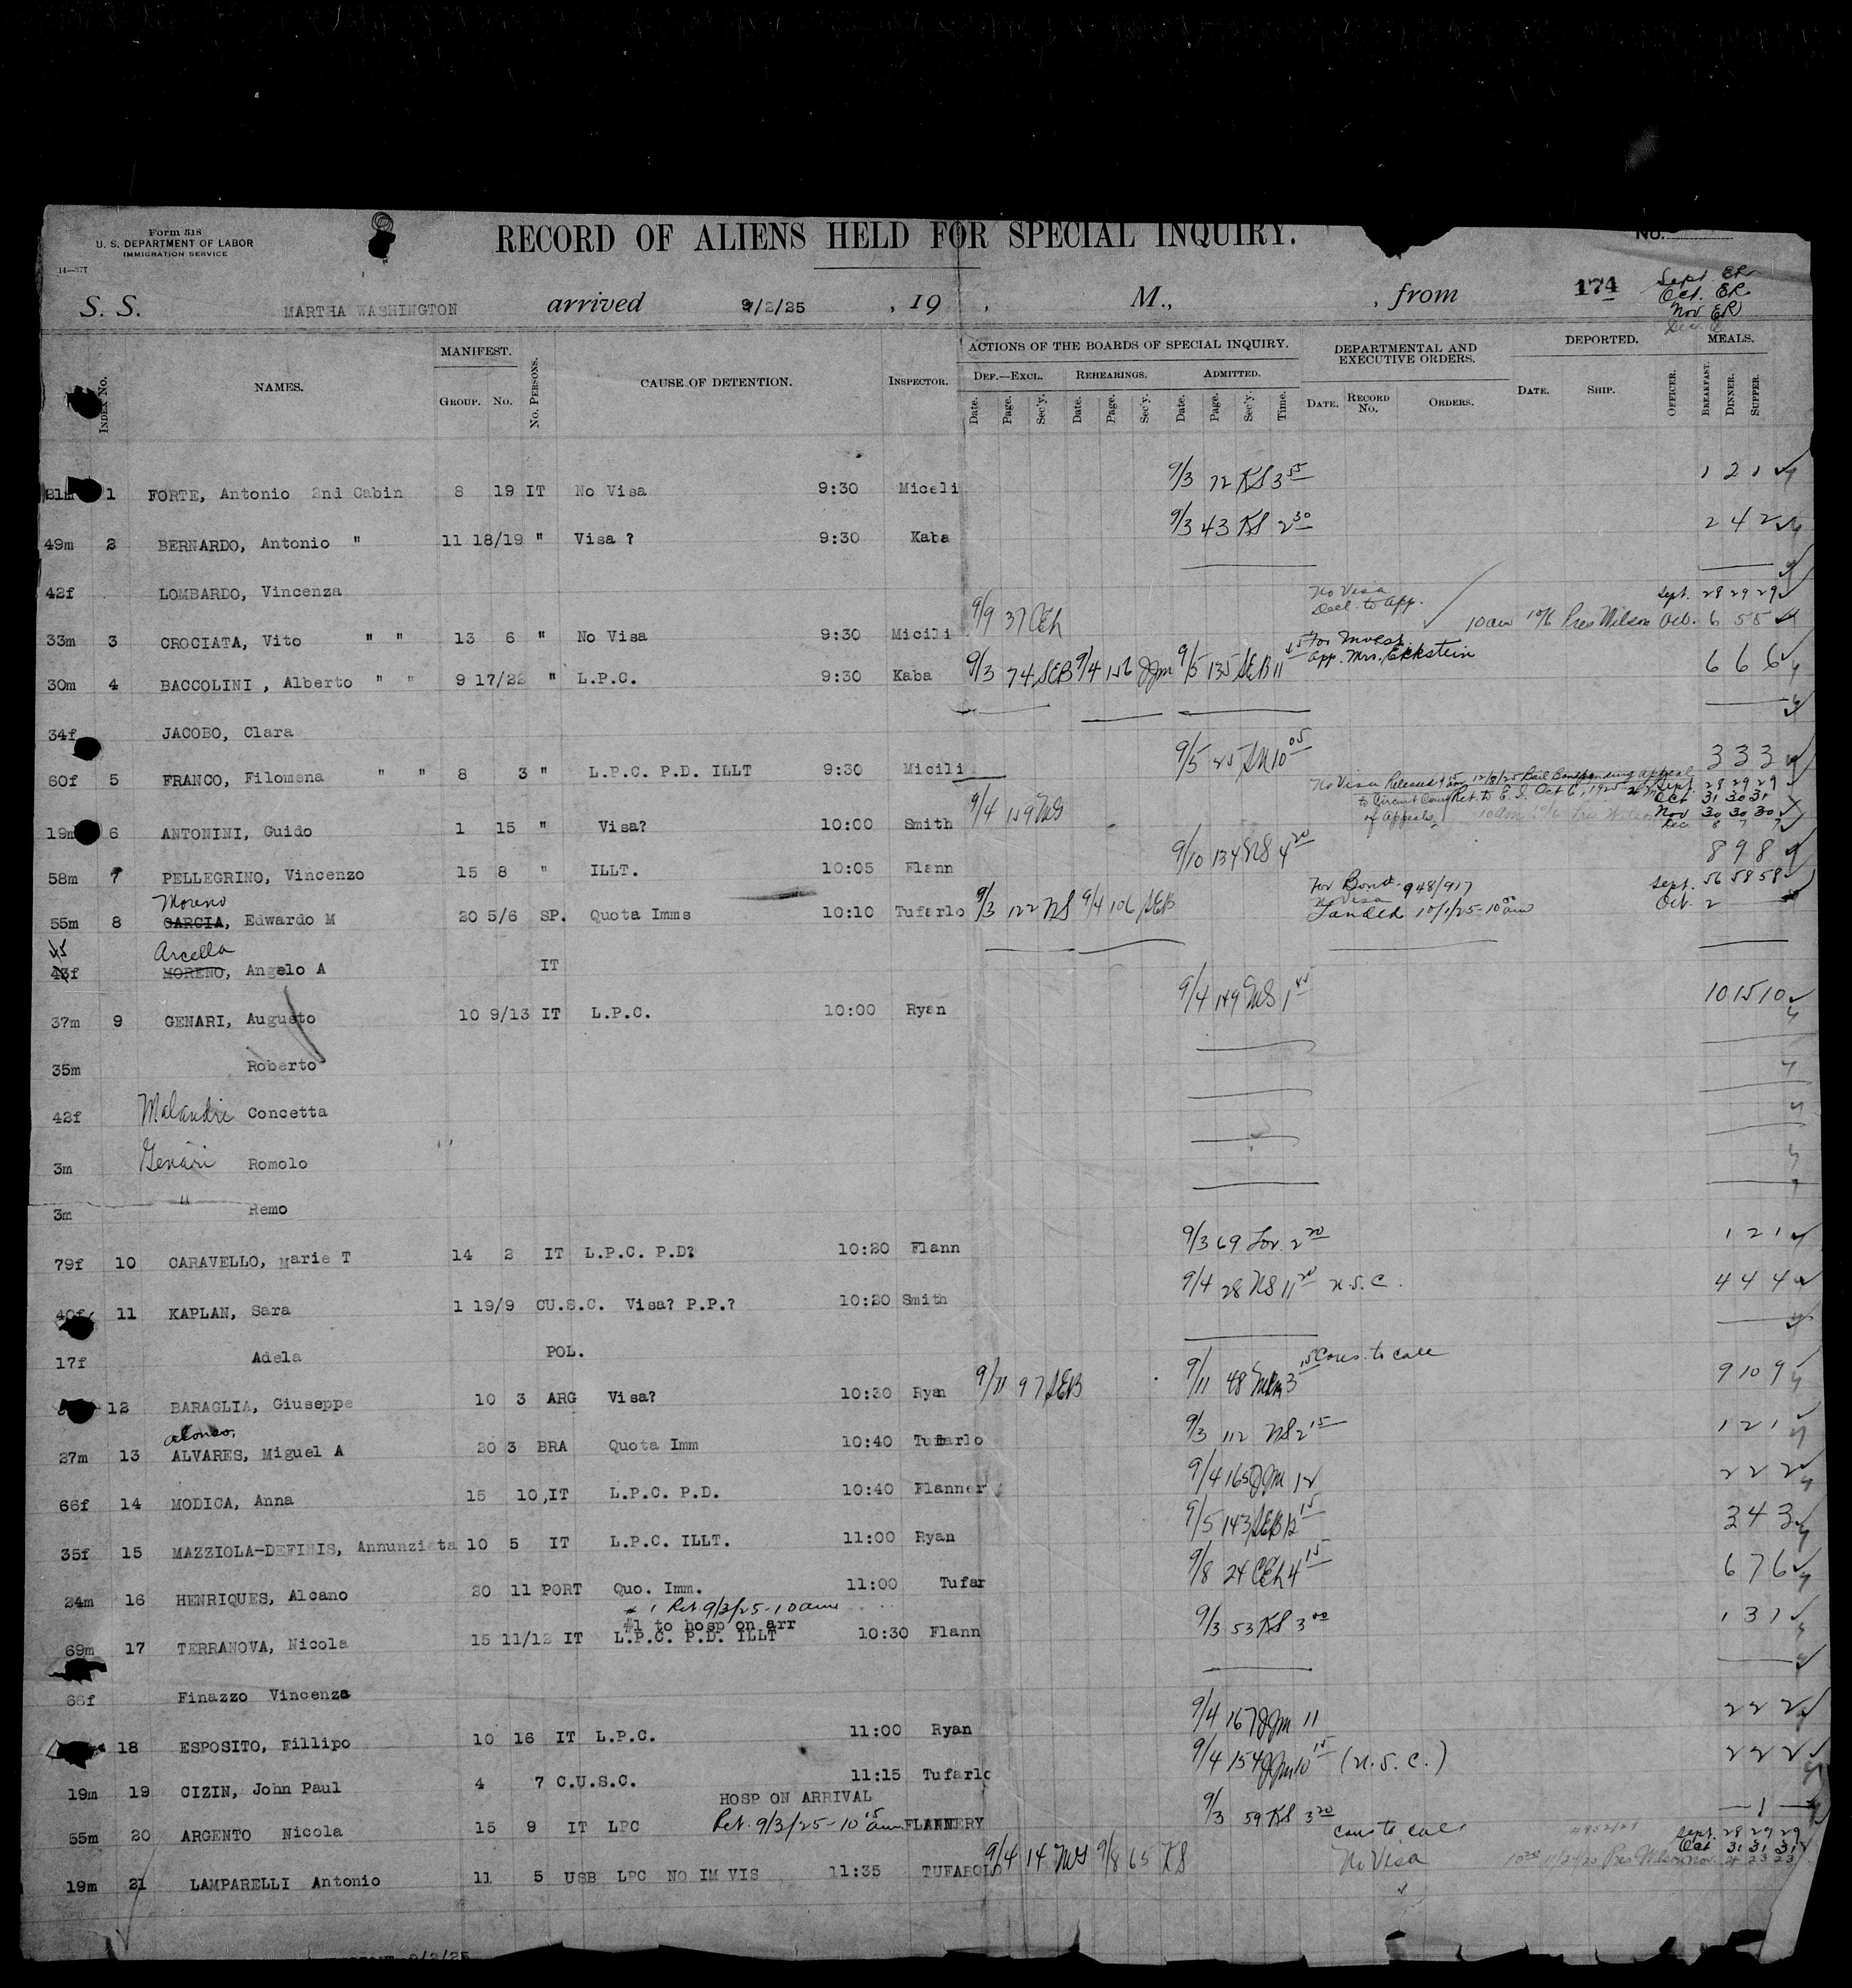 Form 518
U. S. DEPARTMENT OF LABOR
IMMIGRATION SERVICE
14—377
RECORD OF ALIENS HELD FOR SPECIAL INQUIRY.
No.
S. S. MARTHA WASHINGTON arrived 9/2/25, 19 , M., , from 174
Sept ER
Oct. ER
Nov ER
Dec.
INDEX No. NAMES. MANIFEST. GROUP. No. No. PERSONS. CAUSE OF DETENTION. INSPECTOR. ACTIONS OF THE BOARDS OF SPECIAL INQUIRY. DEPARTMENTAL AND EXECUTIVE ORDERS. DEPORTED. MEALS.
DEF.—EXCL. REHEARINGS. ADMITTED.
Date. Page. Sec'y. Date. Page. Sec'y. Date. Page. Sec'y. Time. DATE. RECORD No. ORDERS. DATE. SHIP. OFFICER. BREAKFAST. DINNER. SUPPER.
1 FORTE, Antonio 2nd Cabin 8 19 IT No Visa 9:30 Miceli 9/3 72 KS 3 55 1 2 1
49m 2 BERNARDO, Antonio " 11 18/19 " Visa ? 9:30 Kaba 9/3 43 KS 2 30 2 4 2
42f LOMBARDO, Vincenza
No Visa
Decl. to app.
Sept. 28 29 29
33m 3 CROCIATA, Vito " " 13 6 " No Visa 9:30 Micili 9/9 37 CEh 10am 10/6 Pres Wilson Oct. 6 5 5
For Invest.
App. Mrs. Eckstein
30m 4 BACCOLINI, Alberto " " 9 17/22 " L.P.C. 9:30 Kaba 9/3 74 SEB 9/4 156 JJM 9/5 135 SEB 11 45 6 6 6
34f JACOBO, Clara
60f 5 FRANCO, Filomena " " 8 3 " L.P.C. P.D. ILLT 9:30 Micili 9/5 25 SN 10 05 3 3 3
No Visa Released 12/8/25 Bail Bond pending appeal Sept. 28 29 29
to Circuit Court Ret. to E. I. Oct 6, 1925 Oct 31 30 31
of Appeals 10am 10/6 Pres Wilson Nov 30 30 30
Dec 8 7 7
19m 6 ANTONINI, Guido 1 15 " Visa? 10:00 Smith 9/4 159 MS
58m 7 PELLEGRINO, Vincenzo 15 8 " ILLT. 10:05 Flann 9/10 134 NS 4 20 8 9 8
Moreno
For Bond 948/917
No Visa
Landed 10/1/25-10 50 am
Sept. 56 58 58
Oct. 2
55m 8 GARCIA, Edwardo M 20 5/6 SP. Quota Imms 10:10 Tufarlo 9/3 122 NS 9/4 106 SEB
45 Arcella
43f MORENO, Angelo A IT
37m 9 GENARI, Augusto 10 9/13 IT L.P.C. 10:00 Ryan 9/4 149 MS 1 45 10 15 10
35m Roberto
42f Malandri Concetta
3m Genari Romolo
3m " Remo
79f 10 CARAVELLO, Marie T 14 2 IT L.P.C. P.D? 10:20 Flann 9/3 69 2 20 1 2 1
40f 11 KAPLAN, Sara 1 19/9 CU.S.C. Visa? P.P.? 10:20 Smith 9/4 28 NS 11 20 U.S.C. 4 4 4
17f Adela POL.
12 BARAGLIA, Giuseppe 10 3 ARG Visa? 10:30 Ryan 9/11 97 SEB 9/11 48 3 15 Cons. to call 9 10 9
Alonso,
27m 13 ALVARES, Miguel A 20 3 BRA Quota Imm 10:40 Tufarlo 9/3 112 NS 2 15 1 2 1
66f 14 MODICA, Anna 15 10 IT L.P.C. P.D. 10:40 Flanner 9/4 165 JJM 12 2 2 2
35f 15 MAZZIOLA-DEFINIS, Annunziata 10 5 IT L.P.C. ILLT. 11:00 Ryan 9/5 143 SEB 12 15 3 4 3
24m 16 HENRIQUES, Alcano 20 11 PORT Quo. Imm. 11:00 Tufar 9/8 24 CEh 4 15 6 7 6
# 1 Ret. 9/3/25-10am
#1 to hosp on arr
69m 17 TERRANOVA, Nicola 15 11/12 IT L.P.C. P.D. ILLT 10:30 Flann 9/3 53 KS 3 00 1 3 1
66f Finazzo Vincenza
18 ESPOSITO, Fillipo 10 16 IT L.P.C. 11:00 Ryan 9/4 167 JJM 11 2 2 2
19m 19 CIZIN, John Paul 4 7 C.U.S.C. 11:15 Tufarlo 9/4 154 JJM 10 15 (U.S.C.) 2 2 2
HOSP ON ARRIVAL
55m 20 ARGENTO Nicola 15 9 IT LPC Ret. 9/3/25-10 15 am FLANNERY 9/3 59 KS 3 20 1
Cons to call
Sept. 28 29 29
Oct 31 31 31
19m 21 LAMPARELLI Antonio 11 5 USB LPC NO IM VIS 11:35 TUFAROLO 9/4 14 MS 9/8 65 KS No Visa Pres Wilson Nov. 23 23
9/2/25